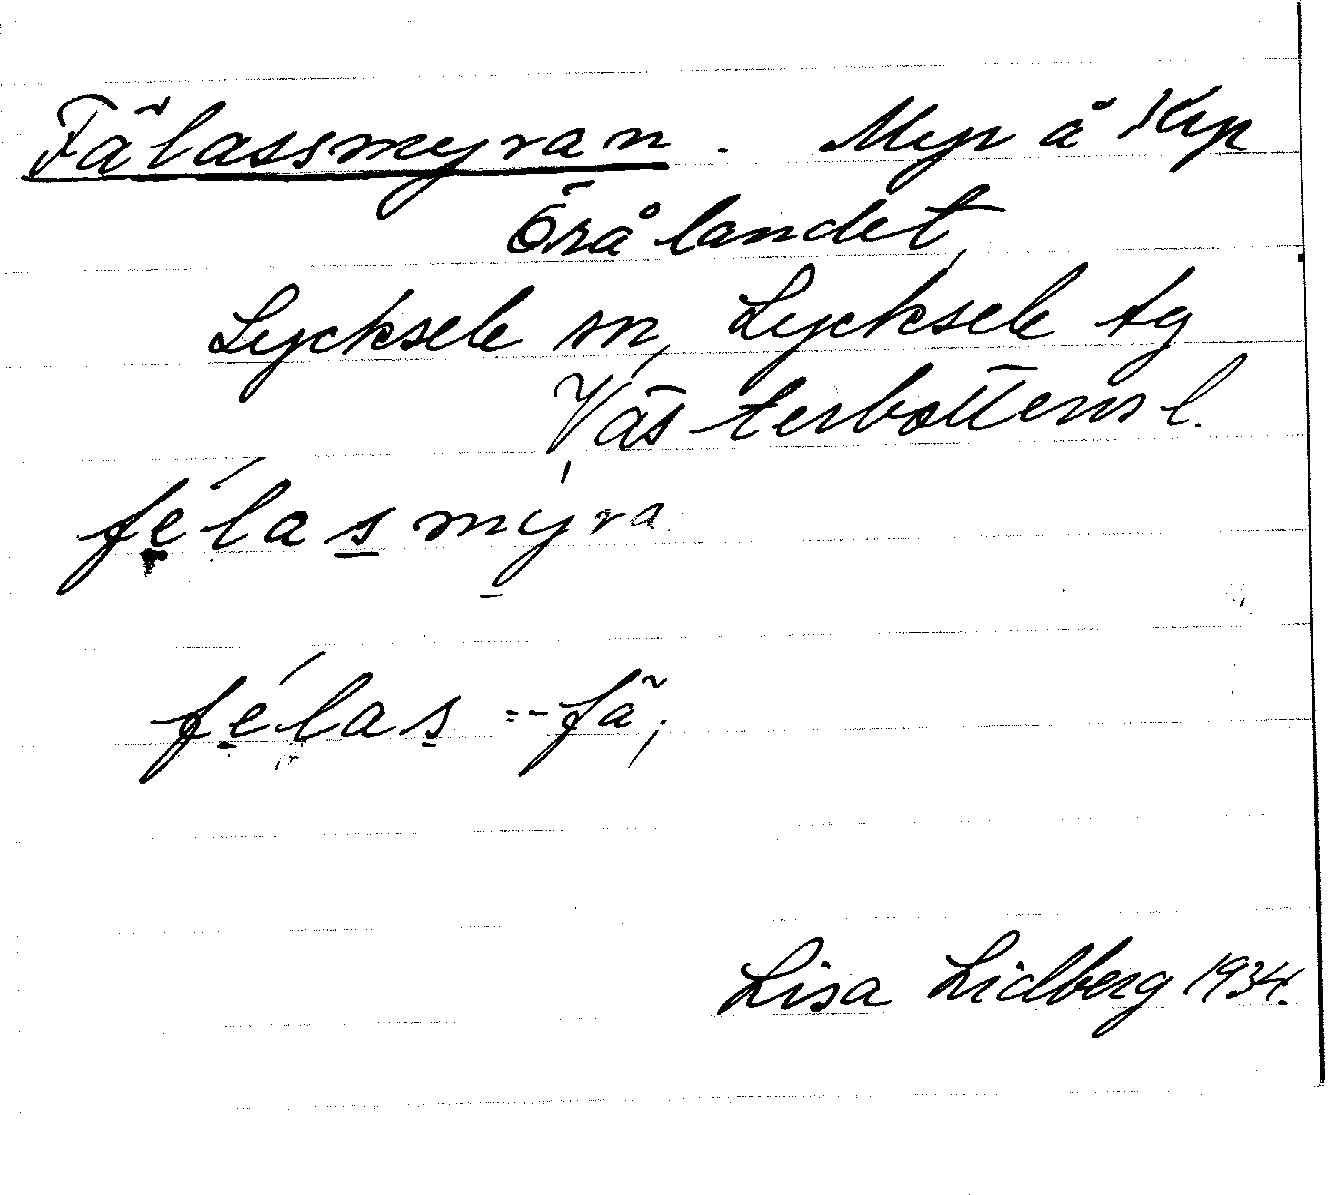 Fälassmyran. Myr å Krp
Örålandet,
Lycksele sn, Lycksele tg
Västerbottens l.
félasmýra
félas = fä;
Lisa Lidberg 1934.